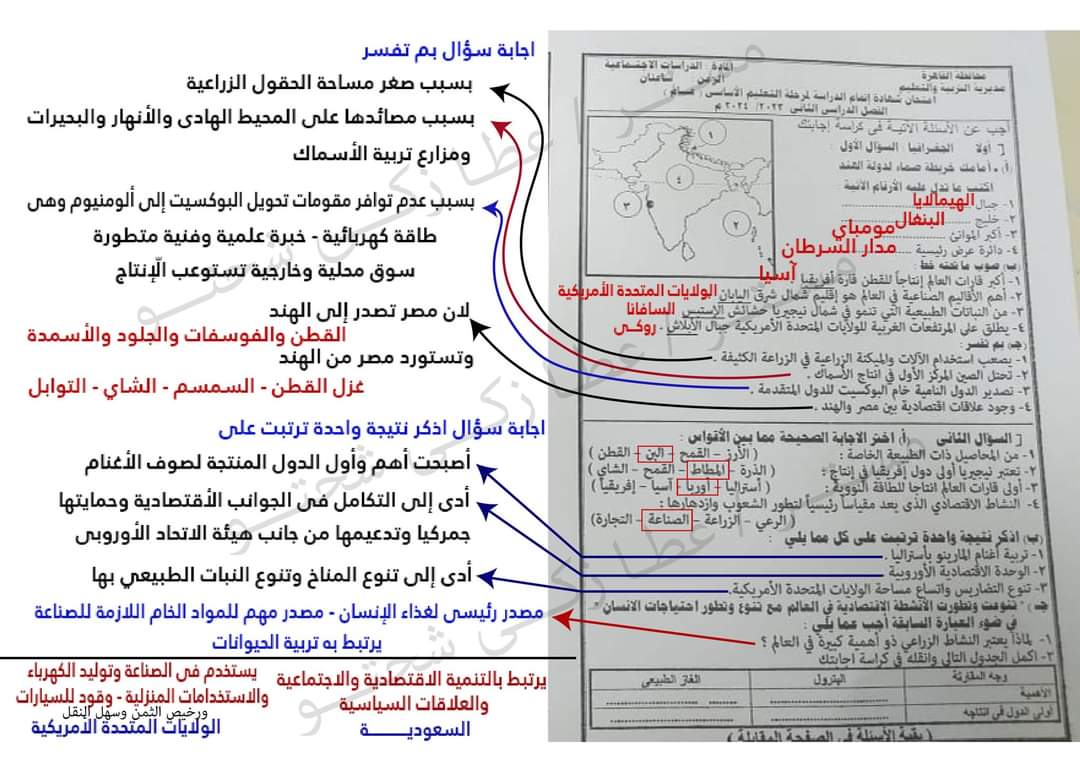 محافظة القاهرة
مديرية التربية والتعليم
المادة : الدراسات الاجتماعية
الزمن : ساعتان
امتحان شهادة إتمام الدراسة لمرحلة التعليم الأساسى ( مساء )
الفصل الدراسى الثانى ٢٠٢٣/ ٢٠٢٤ م
أجب عن الأسئلة الآتية فى كراسة إجابتك
أولا : الجغرافيا : السؤال الأول :
(أ) ـ أمامك خريطة صماء لدولة الهند
اكتب ما تدل عليه الأرقام الآتية
١- جبال ........ الهيمالايا
٢- خليج ........ البنغال
٣- أكبر الموانئ ........ مومباي
٤- دائرة عرض رئيسية ........ مدار السرطان
١
٤
٣
٢
(ب) صوب ما تحته خط :
١- أكبر قارات العالم إنتاجاً للقطن قارة أفريقيا . آسيا
٢- أهم الأقاليم الصناعية فى العالم هو إقليم شمال شرق اليابان الولايات المتحدة الأمريكية
٣- من النباتات الطبيعية التي تنمو في شمال نيجيريا حشائش الإستبس السافانا
٤- يطلق على المرتفعات الغربية للولايات المتحدة الأمريكية جبال الأبلاش . روكـى
(جـ) بم تفسر :
١- يصعب استخدام الآلات والميكنة الزراعية في الزراعة الكثيفة .
٢- تحتل الصين المركز الأول في انتاج الأسماك .
٣- تصدير الدول النامية خام البوكسيت للدول المتقدمة .
٤- وجود علاقات اقتصادية بين مصر والهند .
السؤال الثاني (أ) اختر الاجابة الصحيحة مما بين الأقواس :
١- من المحاصيل ذات الطبيعة الخاصة : ( الأرز – القمح – البن – القطن )
٢- تعتبر نيجيريا أولى دول إفريقيا في إنتاج : ( الذرة – المطاط – القمح – الشاي )
٣- أولى قارات العالم انتاجا للطاقة النووية : ( أستراليا – أوربا – آسيا – إفريقيا )
٤- النشاط الاقتصادي الذى يعد مقياساً رئيسياً لتطور الشعوب وازدهارها :
( الرعي – الزراعة – الصناعة – التجارة)
(ب) اذكر نتيجة واحدة ترتبت على كل مما يلي :
١- تربية أغنام المارينو بأستراليا .
٢- الوحدة الاقتصادية الأوروبية
٣- تنوع التضاريس واتساع مساحة الولايات المتحدة الأمريكية.
جـ - تنوعت وتطورت الأنشطة الاقتصادية في العالم مع تنوع وتطور احتياجات الانسان .
في ضوء العبارة السابقة أجب عما يلي :
١- لماذا يعتبر النشاط الزراعي ذو أهمية كبيرة في العالم ؟
٢- اكمل الجدول التالى وانقله في كراسة اجابتك
وجه المقارنة البترول الغاز الطبيعى
الأهمية
أولى الدول فى انتاجه
( بقية الأسئلة في الصفحة المقابلة )
اجابة سؤال بم تفسر
بسبب صغر مساحة الحقول الزراعية
بسبب مصائدها على المحيط الهادى والأنهار والبحيرات
ومزارع تربية الأسماك
بسبب عدم توافر مقومات تحويل البوكسيت إلى ألومنيوم وهى
طاقة كهربائية - خبرة علمية وفنية متطورة
سوق محلية وخارجية تستوعب الإنتاج
لان مصر تصدر إلى الهند
القطن والفوسفات والجلود والأسمدة
وتستورد مصر من الهند
غزل القطن - السمسم - الشاي - التوابل
اجابة سؤال اذكر نتيجة واحدة ترتبت على
أصبحت أهم وأول الدول المنتجة لصوف الأغنام
أدى إلى التكامل فى الجوانب الأقتصادية وحمايتها
جمركيا وتدعيمها من جانب هيئة الاتحاد الأوروبى
أدى إلى تنوع المناخ وتنوع النبات الطبيعي بها
مصدر رئيسى لغذاء الإنسان - مصدر مهم للمواد الخام اللازمة للصناعة
يرتبط به تربية الحيوانات
يرتبط بالتنمية الاقتصادية والاجتماعية
والعلاقات السياسية
السعوديــــــــة
يستخدم فى الصناعة وتوليد الكهرباء
والاستخدامات المنزلية - وقود للسيارات
ورخيص الثمن وسهل النقل
الولايات المتحدة الأمريكية
مستر / عطا زكـى شحتـو